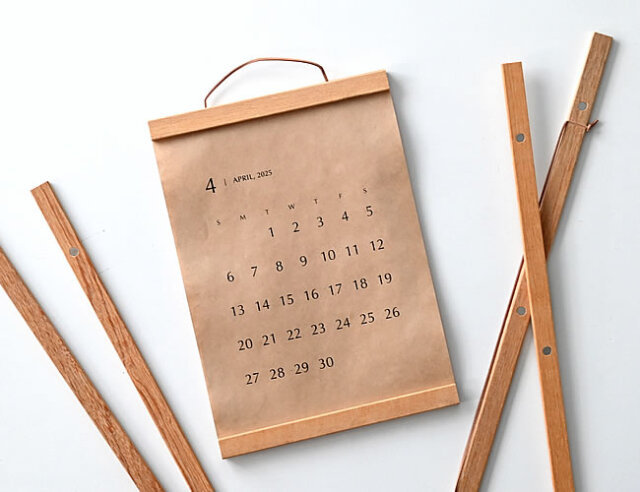 4 | APRIL, 2025
S M T W T F S
1 2 3 4 5
6 7 8 9 10 11 12
13 14 15 16 17 18 19
20 21 22 23 24 25 26
27 28 29 30